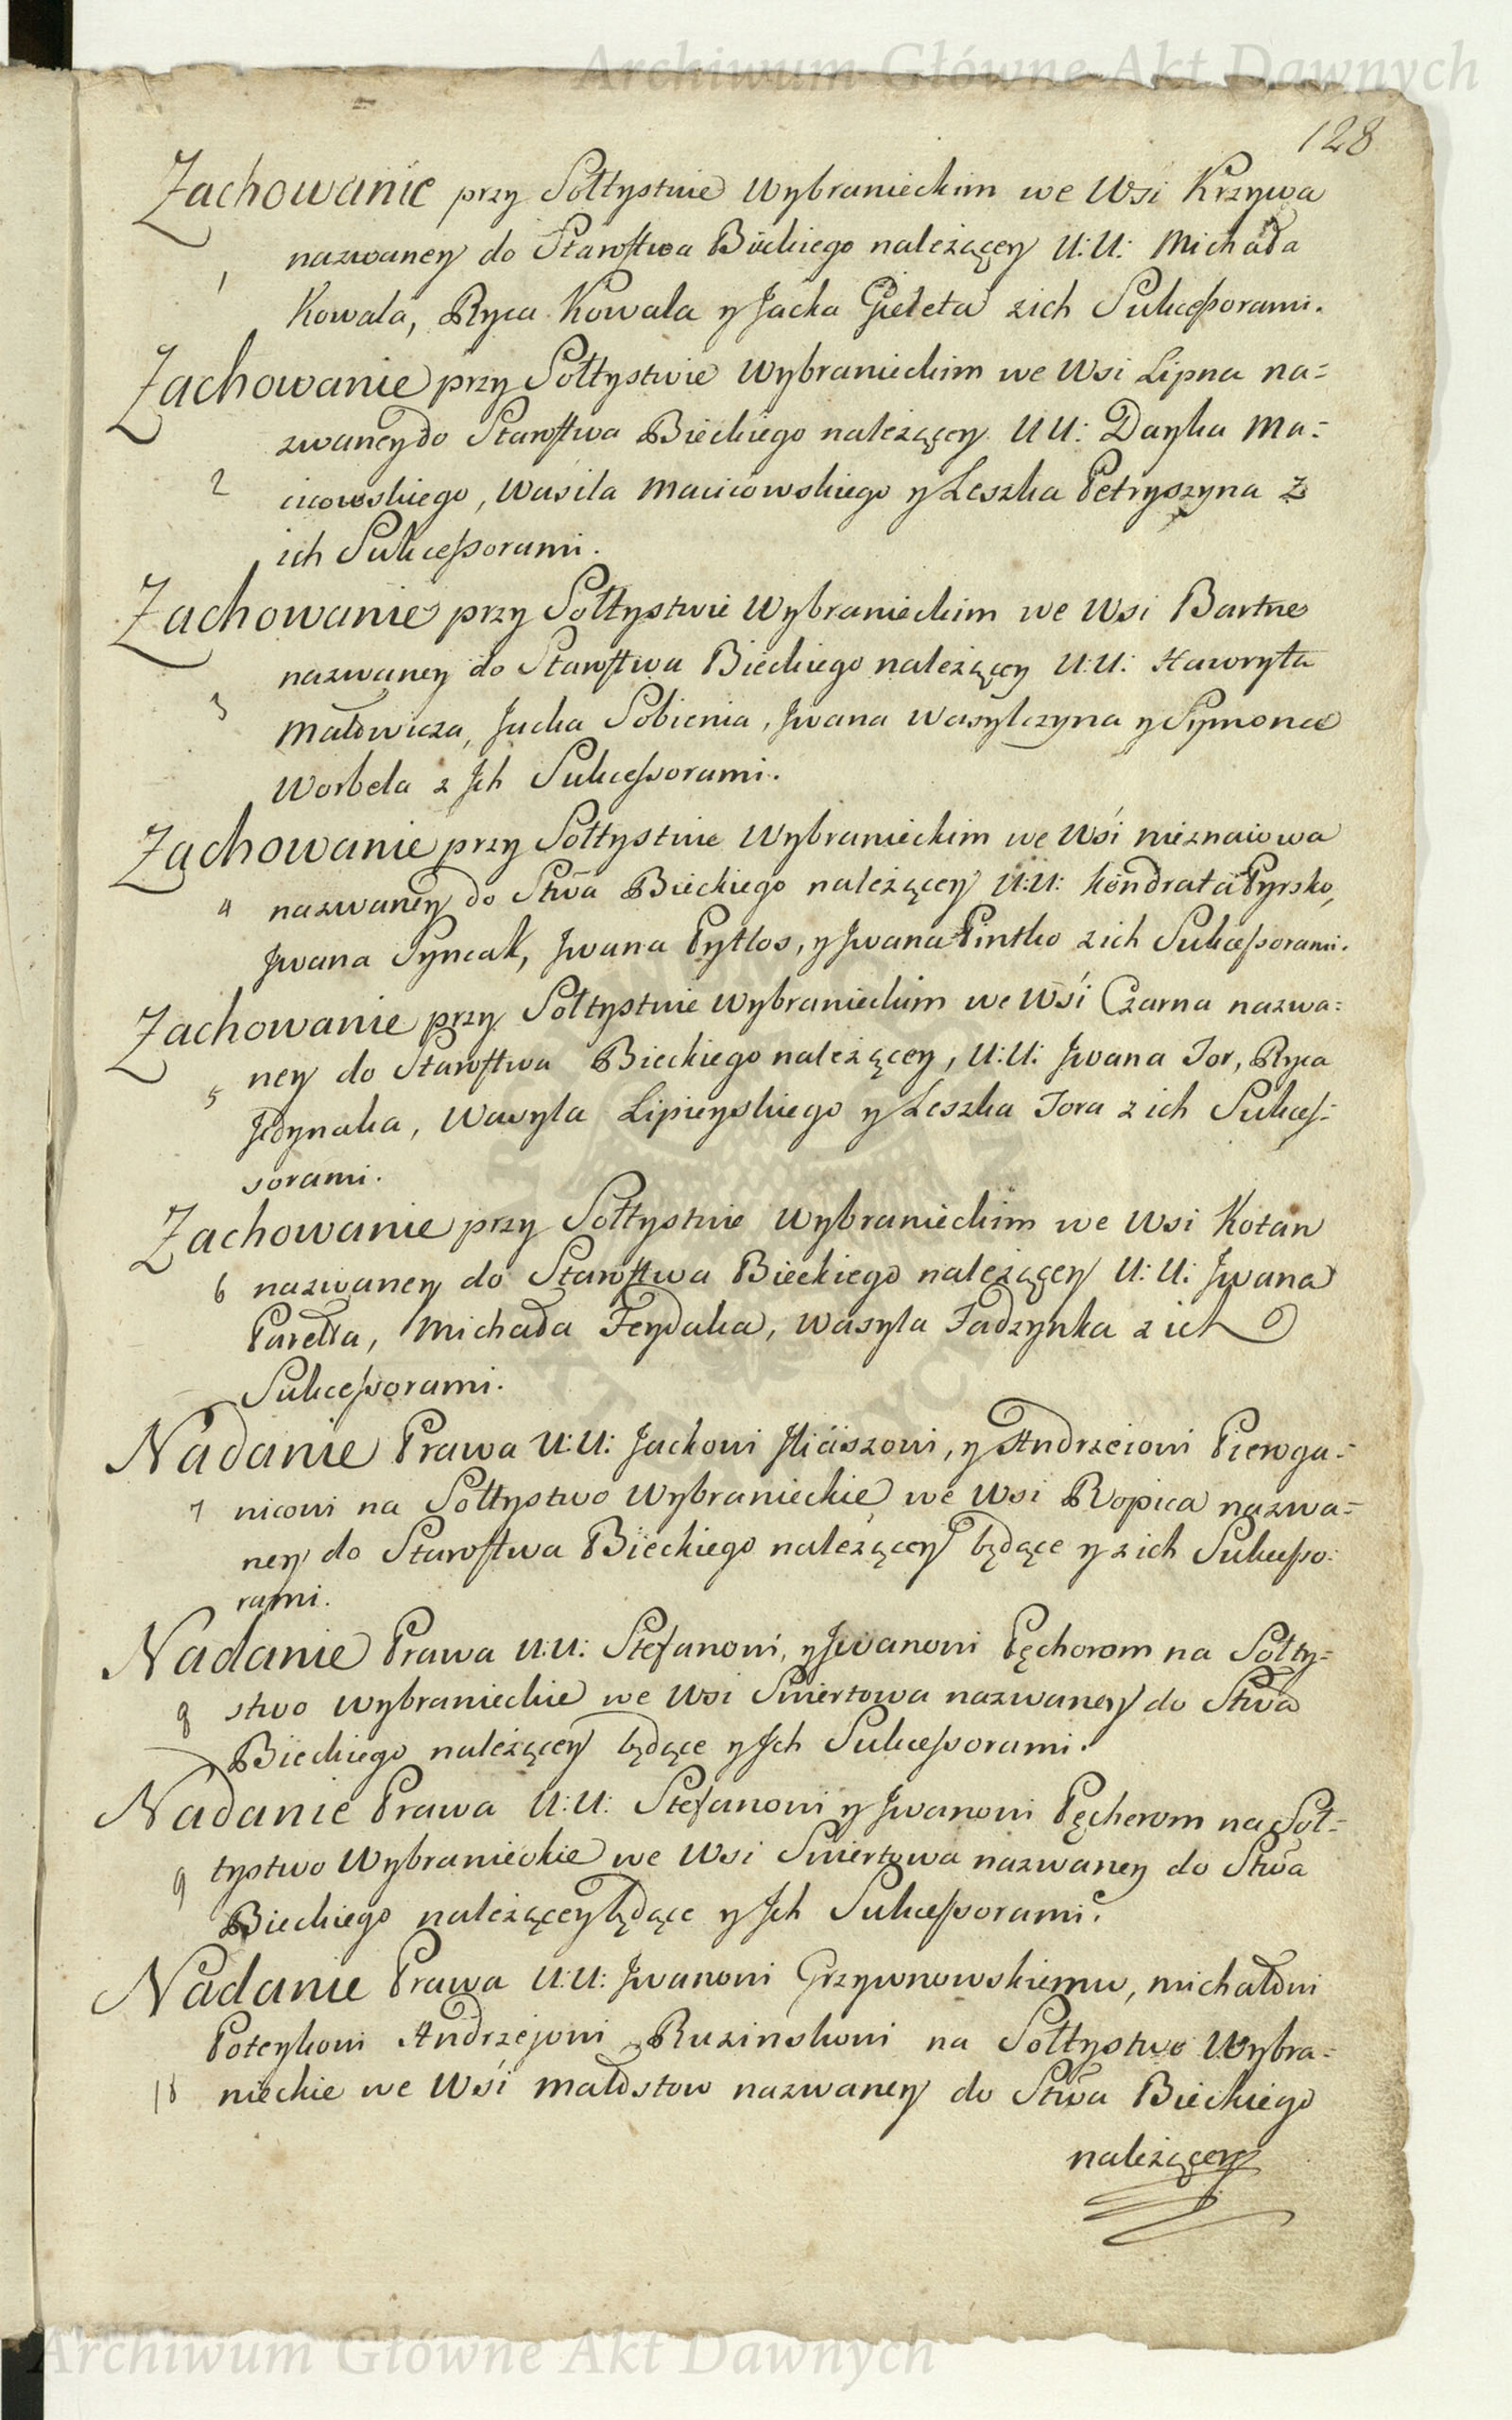 Archiwum Główne Akt Dawnych
128
Zachowanie przy Sołtystwie Wybranieckim we Wsi Krzywa
nazwaney do Starostwa Bieckiego należącey U:U: Michała
1
Kowala, Ryca Kowala y Jacka Gieleta z ich Sukcessorami.
Zachowanie przy Sołtystwie Wybranieckim we Wsi Lipna na=
zwaney do Starostwa Bieckiego należącey UU: Dańka Ma=
2 cicowskiego, Wasila Macicowskiego y Leszka Petryszyna z
ich Sukcessorami.
Zachowanie przy Sołtystwie Wybranieckim we Wsi Bartne
nazwaney do Starostwa Bieckiego należącey U:U: Hawryła
3 Małowicza, Jacka Sobienia, Jwana Wasylczyna y Symona
Worbela z Jch Sukcessorami.
Zachowanie przy Sołtystwie Wybranieckim we Wsi Nieznaiowa
4 nazwaney do Stwa Bieckiego należącey U:U: Kondrata Pyrsko,
Jwana Syncak, Jwana Pytlos, y Jwana Pintko z ich Sukcessorami.
Zachowanie przy Sołtystwie Wybranieckim we Wsi Czarna nazwa=
5 ney do Starostwa Bieckiego należącey, U:U: Jwana Jor, Ryca
Jedynaka, Wasyla Lipieyskiego y Leszka Jora z ich Sukces=
sorami.
Zachowanie przy Sołtystwie Wybranieckim we Wsi Kotan
6 nazwaney do Starostwa Bieckiego należącey U:U: Jwana
Pawełka, Michała Feydaka, Wasyla Fadzynka z ich
Sukcessorami.
Nadanie Prawa U:U: Jackowi Jliciszowi, y Andrzeiowi Pieroga=
7 nicowi na Sołtystwo Wybranieckie we Wsi Ropica nazwa=
ney do Starostwa Bieckiego należącey będące y z ich Sukcesso=
rami.
Nadanie Prawa U:U: Stefanowi, y Jwanowi Pęchorom na Sołty=
8 stwo Wybranieckie we Wsi Swierzowa nazwaney do Stwa
Bieckiego należącey będące y Jch Sukcessorami.
Nadanie Prawa U:U: Stefanowi y Jwanowi Pęcherom na Soł=
9 tystwo Wybranieckie we Wsi Swierzowa nazwaney do Stwa
Bieckiego należącey będące y Jch Sukcessorami.
Nadanie Prawa U:U: Jwanowi Grzywnowskiemu, Michałowi
Poteykowi Andrzejowi Ruzinskowi na Sołtystwo Wybra=
10 nieckie we Wsi Małostow nazwaney do Stwa Bieckiego
należącey
Archiwum Główne Akt Dawnych